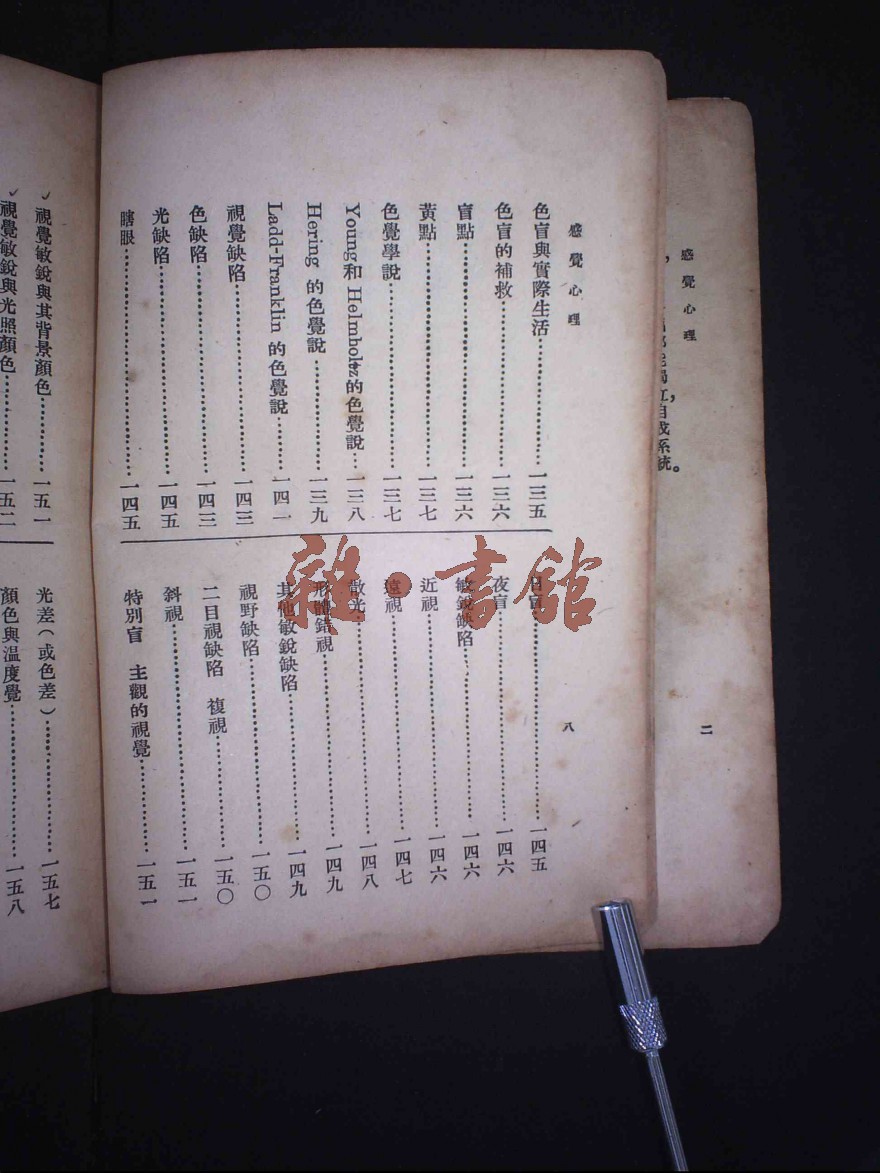 感覺心理
二
自我系統。
感覺心理
八
色盲與實際生活……一三五
色盲的補救……一三六
盲點……一三六
黃點……一三七
色覺學說……一三七
Young和Helmholtz的色覺說……一三八
Hering 的色覺說……一三九
Ladd-Franklin 的色覺說……一四一
視覺缺陷……一四三
色缺陷……一四三
光缺陷……一四五
瞎眼……一四五
日盲……一四五
夜盲……一四六
敏銳缺陷……一四六
近視……一四六
遠視……一四七
散光……一四八
形體錯視……一四九
其他敏銳缺陷……一四九
視野缺陷……一五〇
二目視缺陷 複視……一五〇
斜視……一五一
特別盲 主觀的視覺……一五一
視覺敏銳與其背景顏色……一五一
視覺敏銳與光照顏色……一五二
光差(或色差)……一五七
顏色與溫度覺……一五八
雜·書館